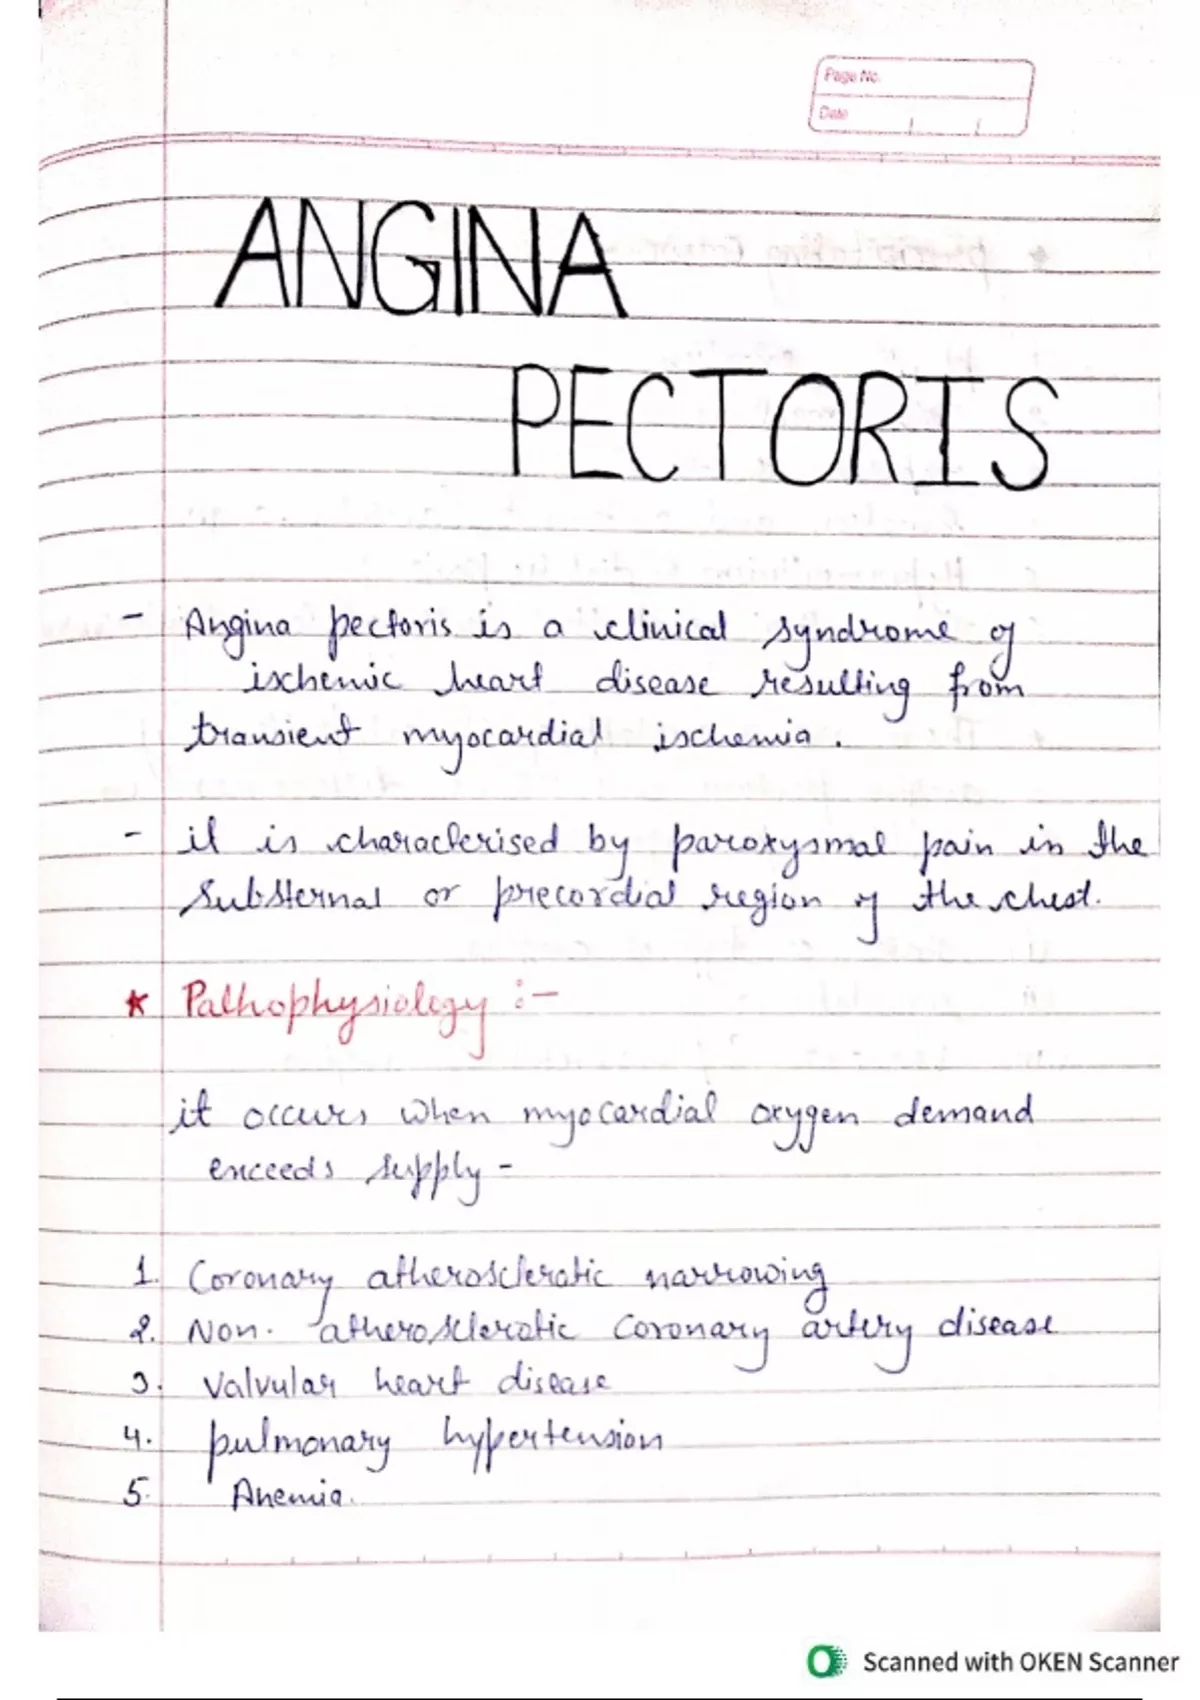 Page No.
Date
ANGINA
PECTORIS
- Angina pectoris is a clinical syndrome of
ischemic heart disease resulting from
transient myocardial ischemia.
- it is characterised by paroxysmal pain in the
substernal or precordial region of the chest.
* Pathophysiology :-
it occurs when myocardial oxygen demand
exceeds supply -
1. Coronary atherosclerotic narrowing
2. Non. atherosclerotic coronary artery disease
3. Valvular heart disease
4. pulmonary hypertension
5. Anemia.
Scanned with OKEN Scanner